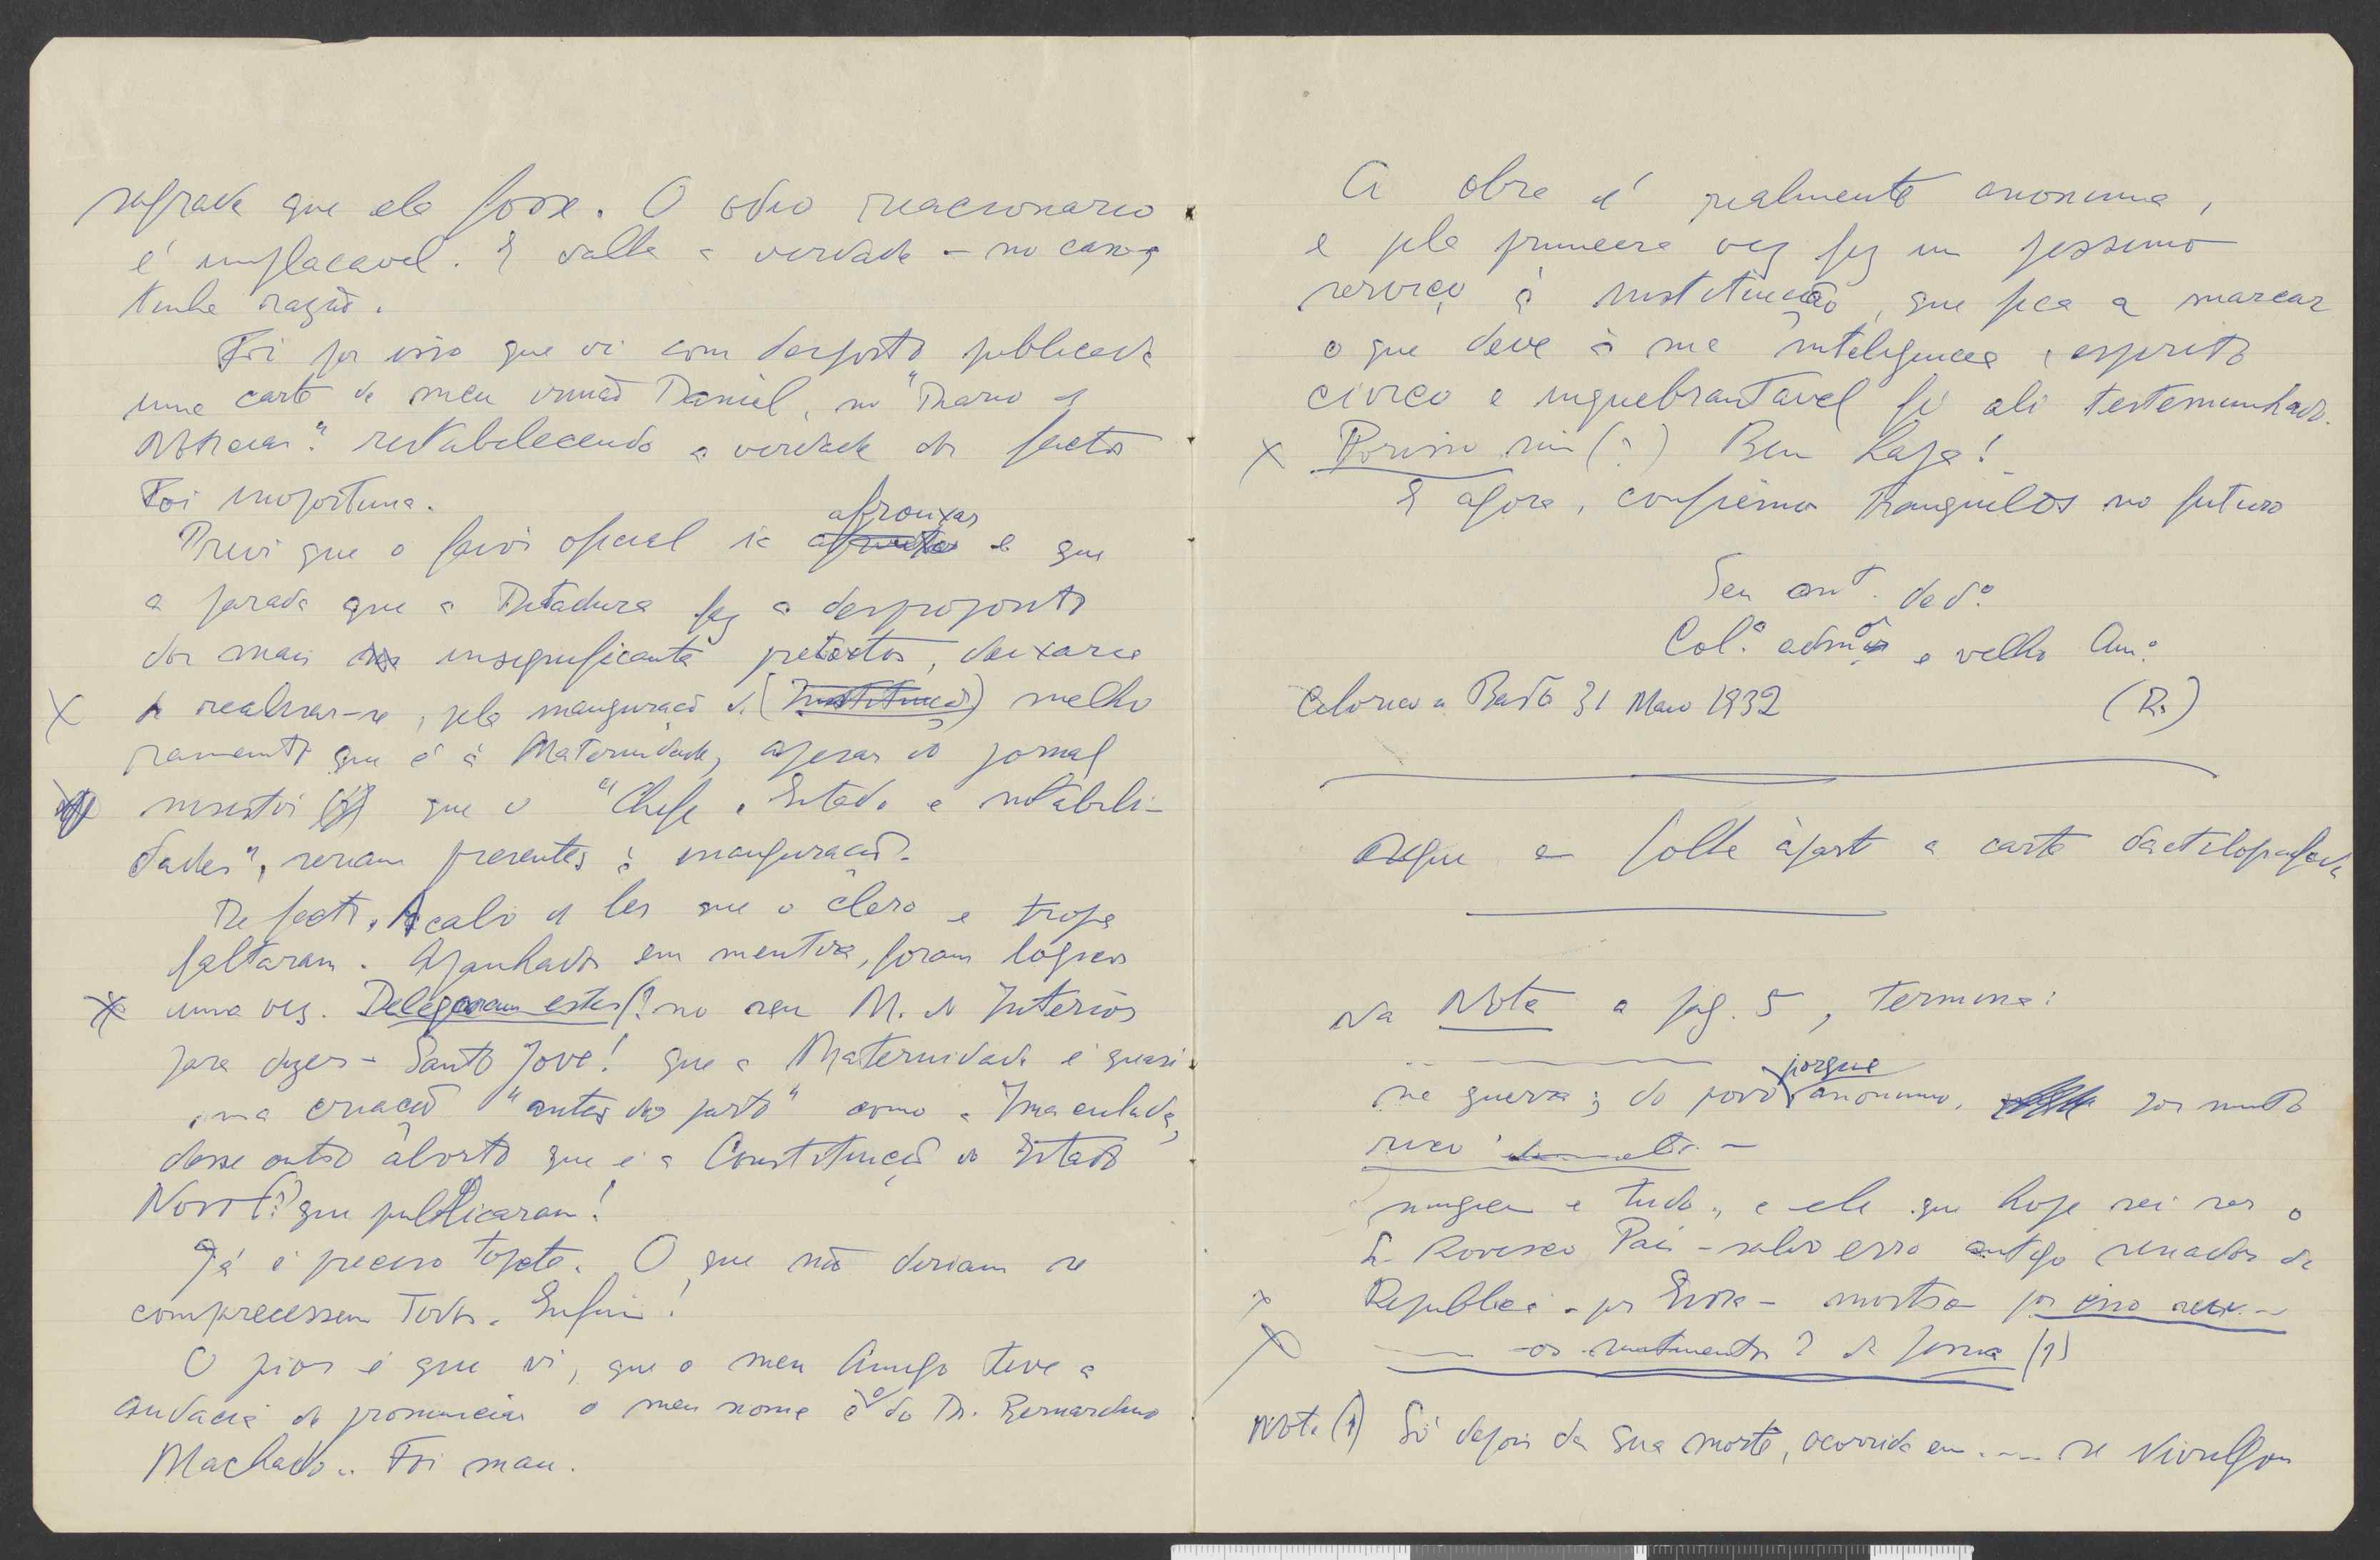 sagrada que ela fosse. O odio reacionario
é implacavel. E dalla a verdade - no caso,
tinha razão.
Foi por isso que vi com desgosto publicada
uma carta de meu irmão Daniel, no "Diario de
Noticias" restabelecendo a verdade dos factos
Foi inoportuna.
afrouxar
Previ que o favor oficial ia e que
a parada que a Ditadura faz a desproposito
dos mais insignificantes pretextos, deixaria
X de realisar-se, pela inauguração do (Instituição) melho
ramento que é a Maternidade, apesar do jornal
insistir que o "Chefe do Estado e notabili-
dades", seriam presentes à inauguração.
De facto. Acabo de ler que o clero e tropa
faltaram. Apanhados em mentira, foram logicos
X uma vez. Delegaram estes(? no seu M. do Interior
para dizer - Santo Jove! que a Maternidade é quasi
uma criação "antes do parto" como a Imaculada,
desse outro aborto que é a Constituição do Estado
Novo (?) que publicaram!
Já é preciso topete. O que não diriam se
comparecessem todos. Enfim!
O pior é que vi, que o meu Amigo teve a
audacia de pronunciar o meu nome e o do Dr. Bernardino
Machado.. Foi mau.
A obra é realmente anonima,
e pela primeira vez fez um pessimo
serviço à instituição, que fica a marcar
o que deve à sua inteligencia, espirito
civico e inquebrantavel fé ali testemunhado.
X Porisso sim (?) Bem haja!
E agora, confiêmos tranquilos no futuro
Seu ant. ded.º
Col.ª adm.or e velho Am.º
Celorico de Basto 31 Maio 1932 (R.)
segue em folha àparte a carta dactilografada
Na Nota a pag. 5, termina:
porque
na guerra; do povo anonimo, por muito
rico
ninguem e tudo, e ele que hoje sei ser o
Sr. Rovisco Pais - salvo erro antigo senador da
x Republica - por Evora - mostra por isso
X os sentimentos? de forma (1)
Nota (1) Só depois da sua morte, ocorrida em .... se divulgou